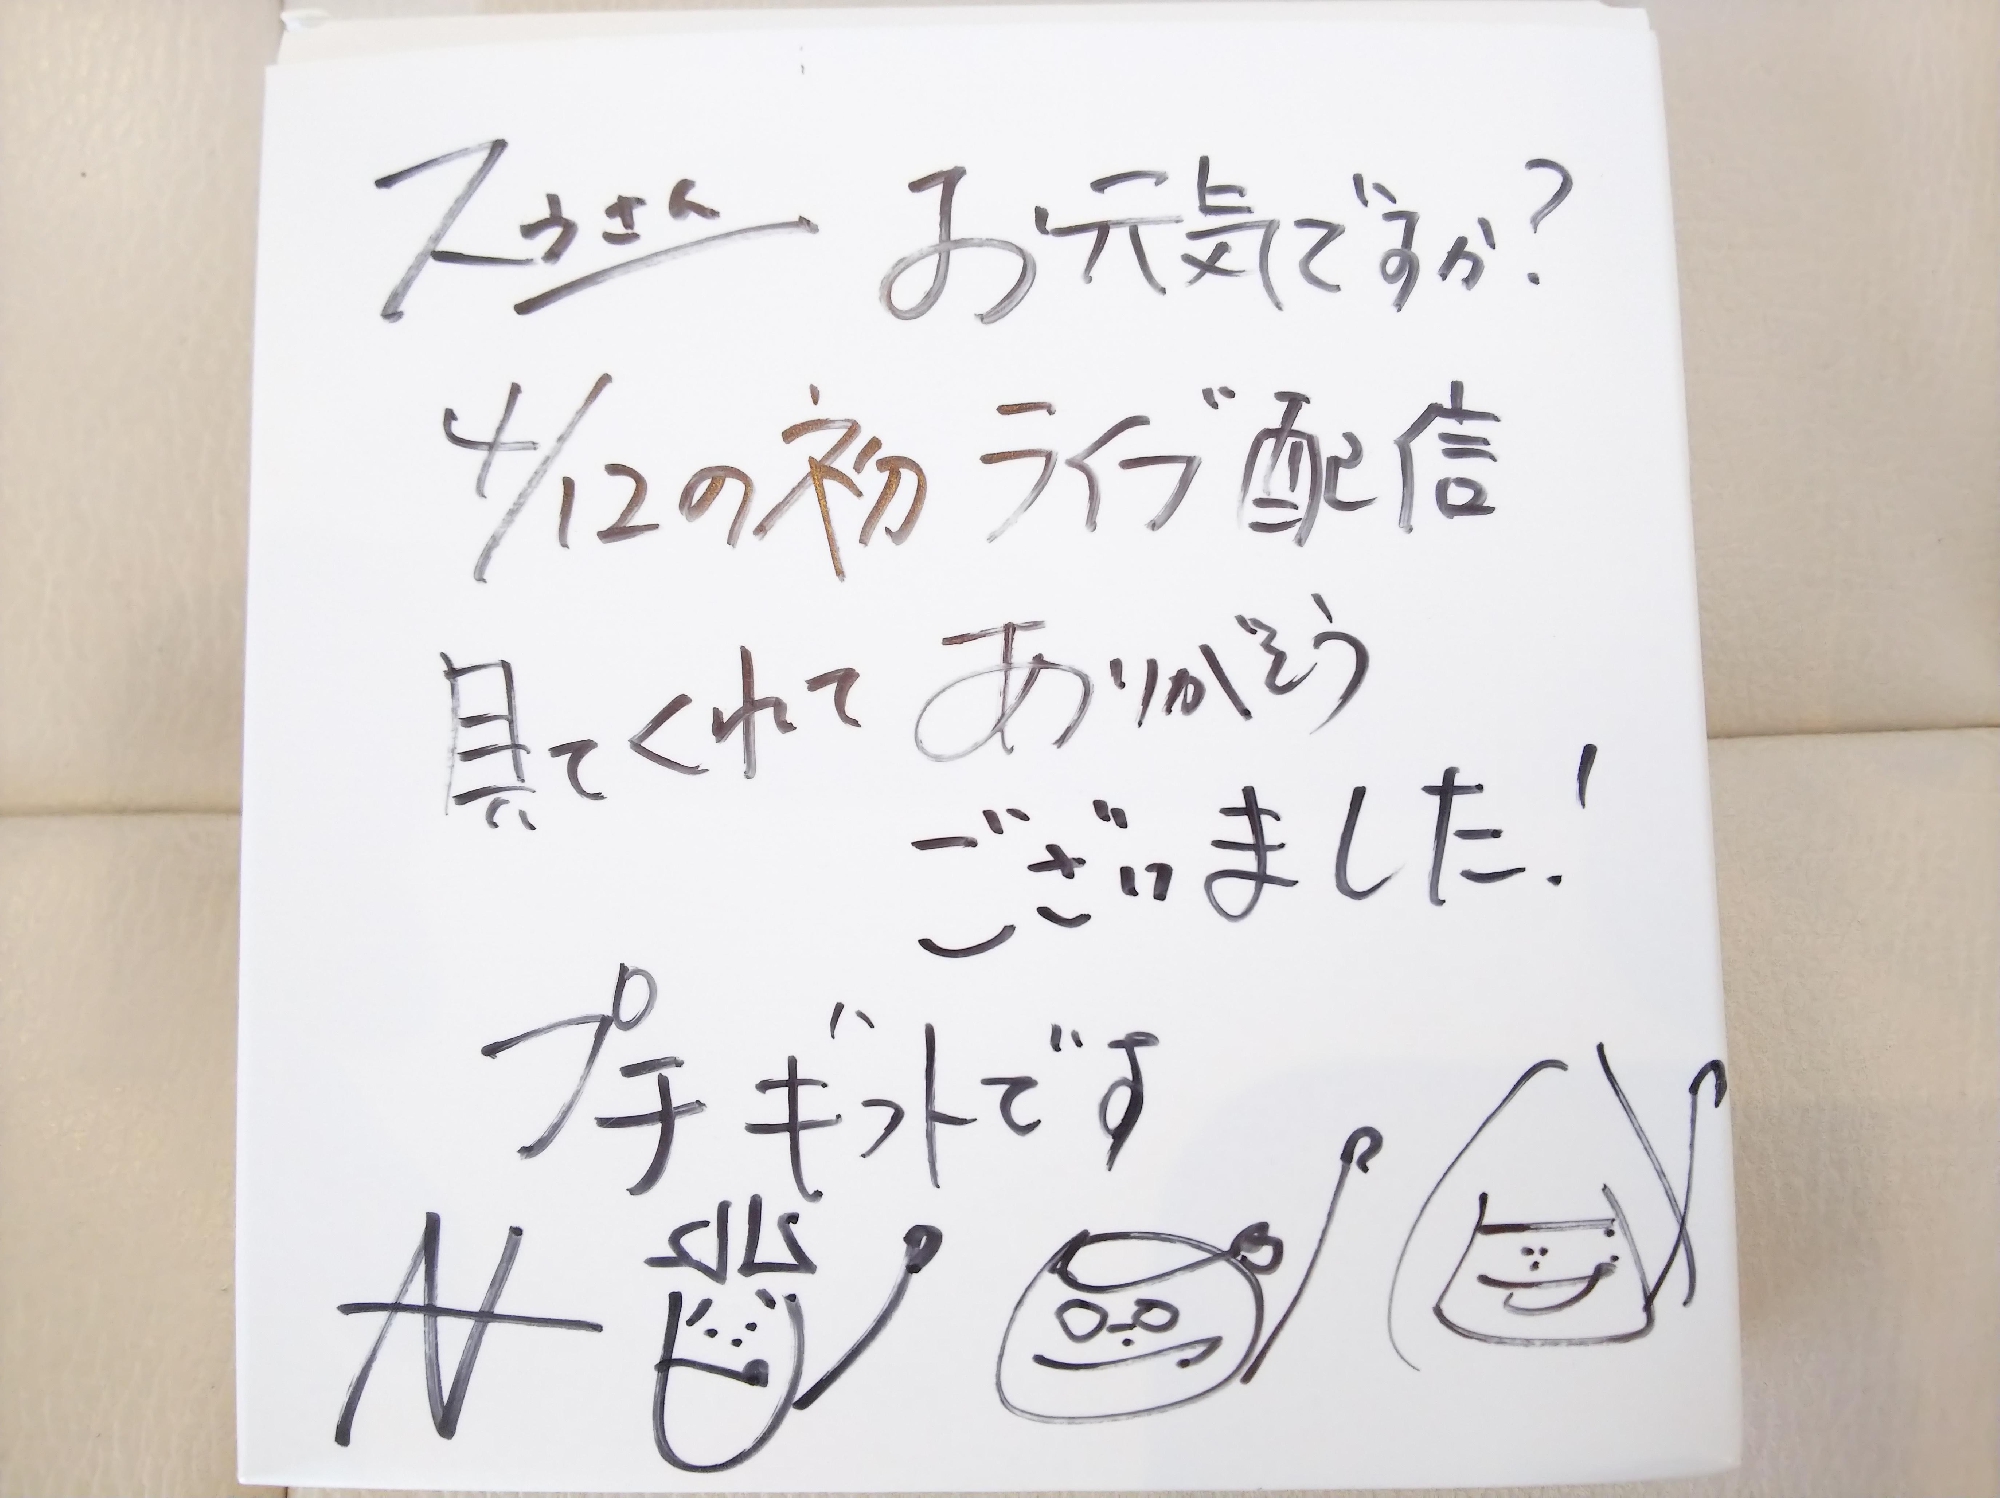 スゥさん お元気ですか?
4/12の初ライブ配信
見てくれてありがとう
ございました!
プチギフトです
N